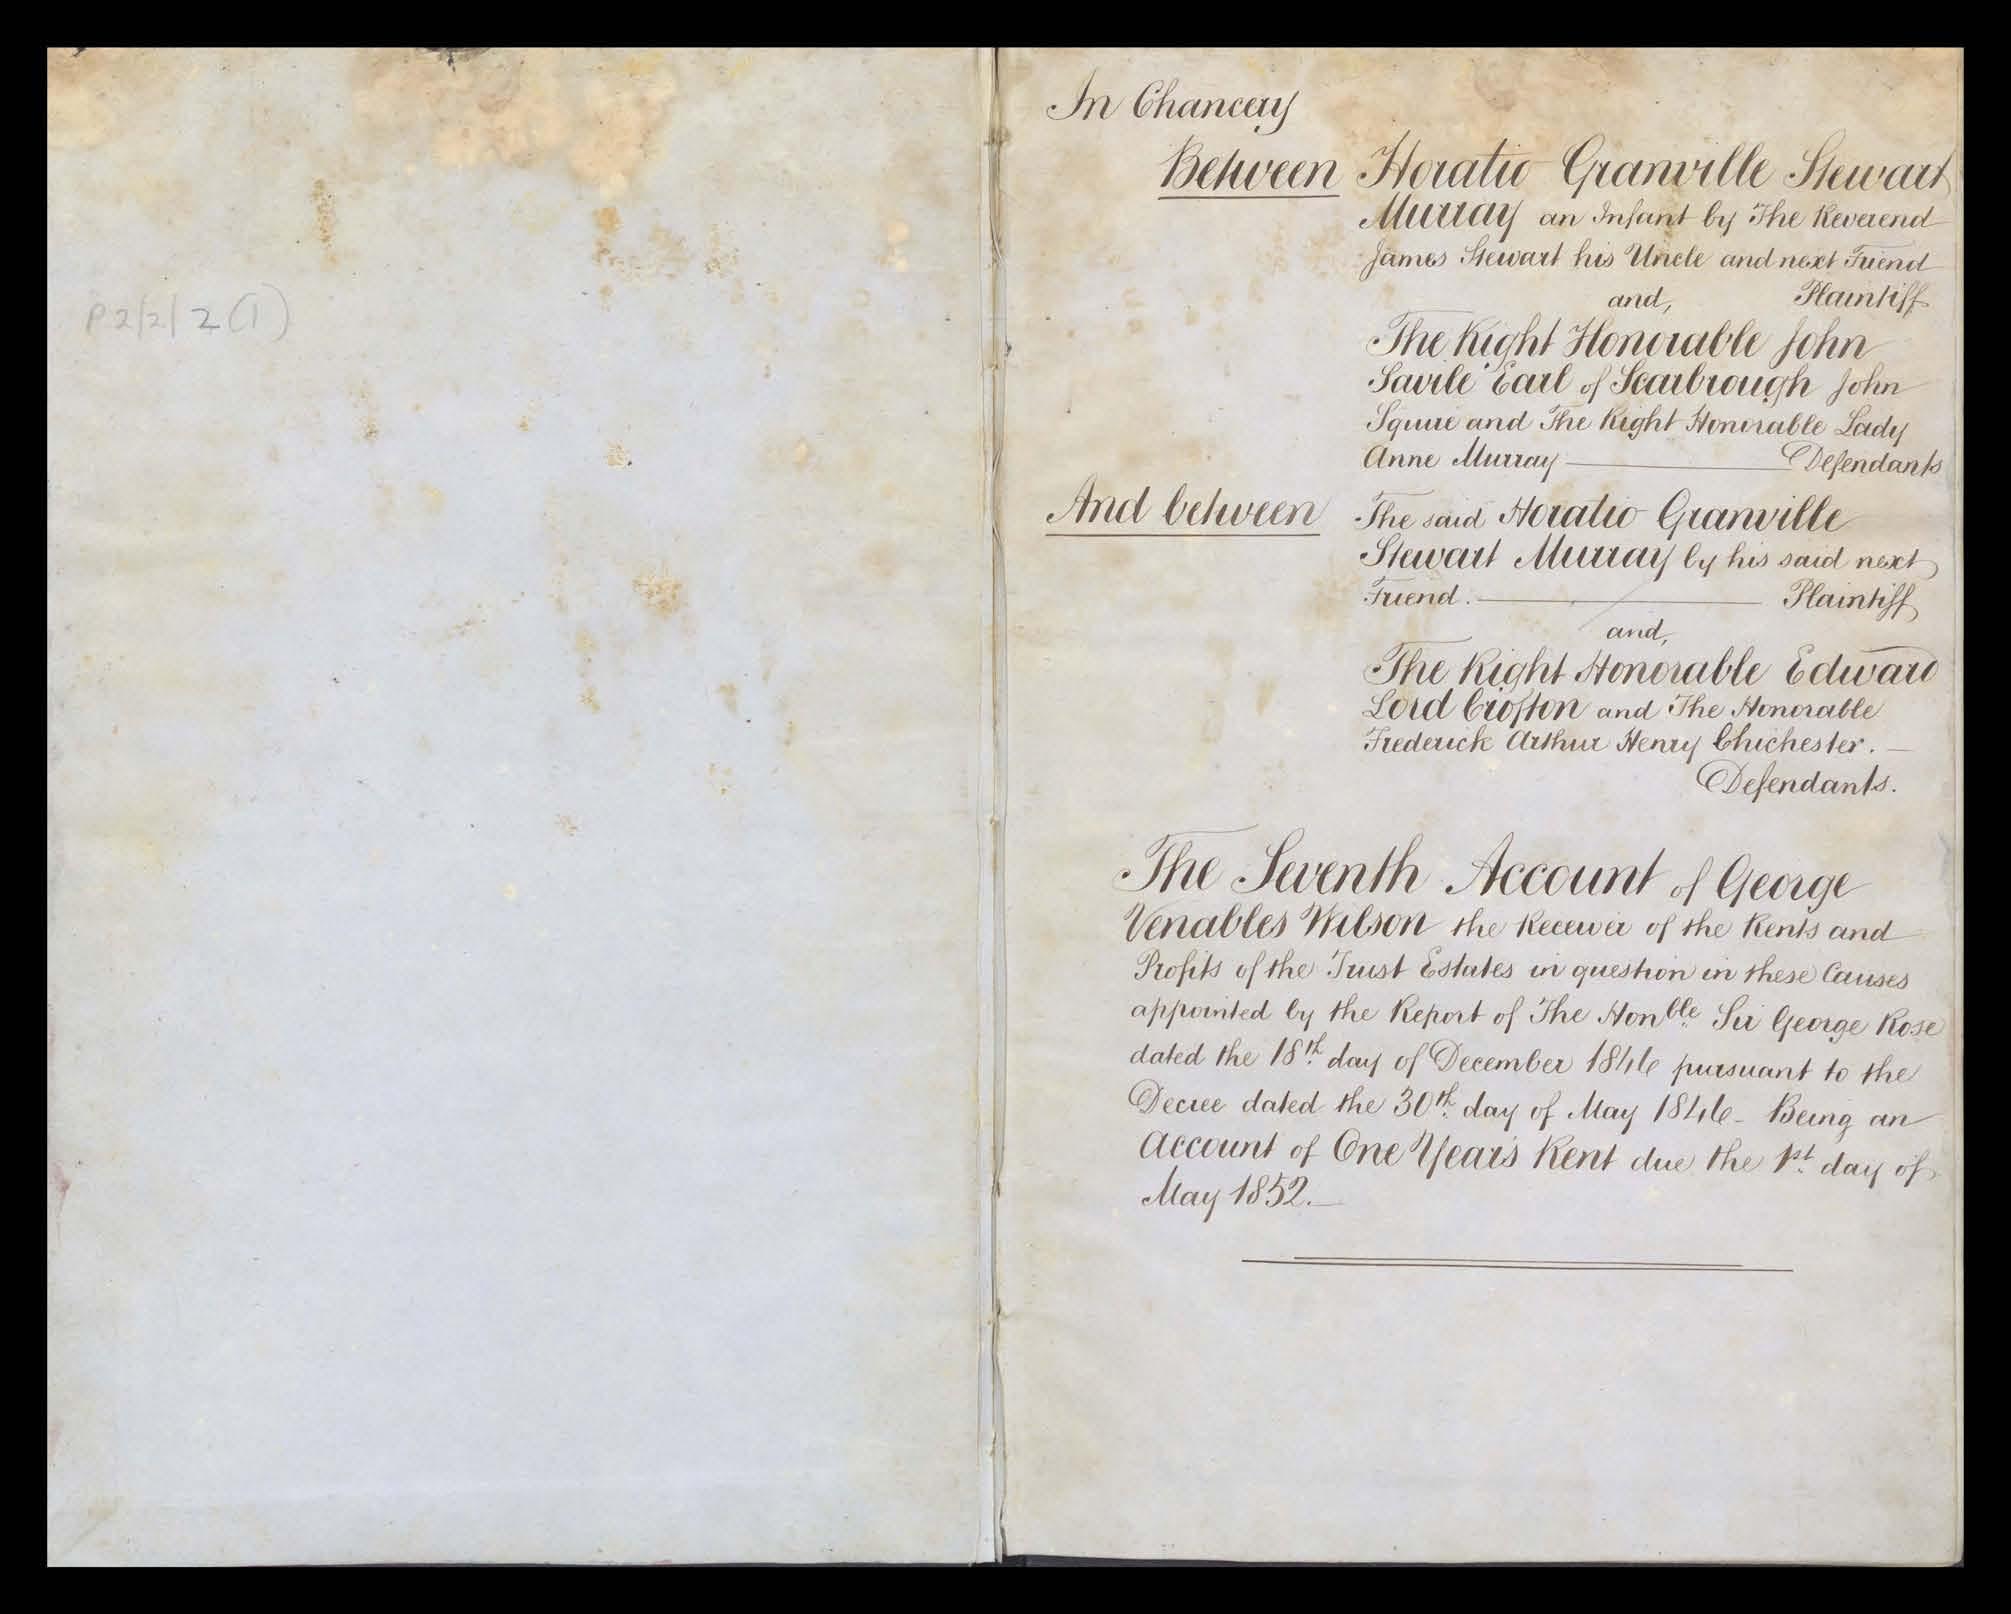 P2/2/2(1)
In Chancery
Between Horatio Granville Stewart
Murray an Infant by The Reverend
James Stewart his Uncle and next Friend
and, Plaintiff
The Right Honorable John
Savile Earl of Scarbrough John
Squire and The Right Honorable Lady
Anne Murray Defendants
And between The said Horatio Granville
Stewart Murray by his said next
Friend. Plaintiff
and,
The Right Honorable Edward
Lord Crofton and The Honorable
Frederick Arthur Henry Chichester.
Defendants.
The Seventh Account of George
Venables Wilson the Receiver of the Rents and
Profits of the Trust Estates in question in these Causes
appointed by the Report of The Honble. Sir George Rose
dated the 18th. day of December 1846 pursuant to the
Decree dated the 30th. day of May 1846 - Being an
Account of One Year's Rent due the 1st. day of
May 1852.